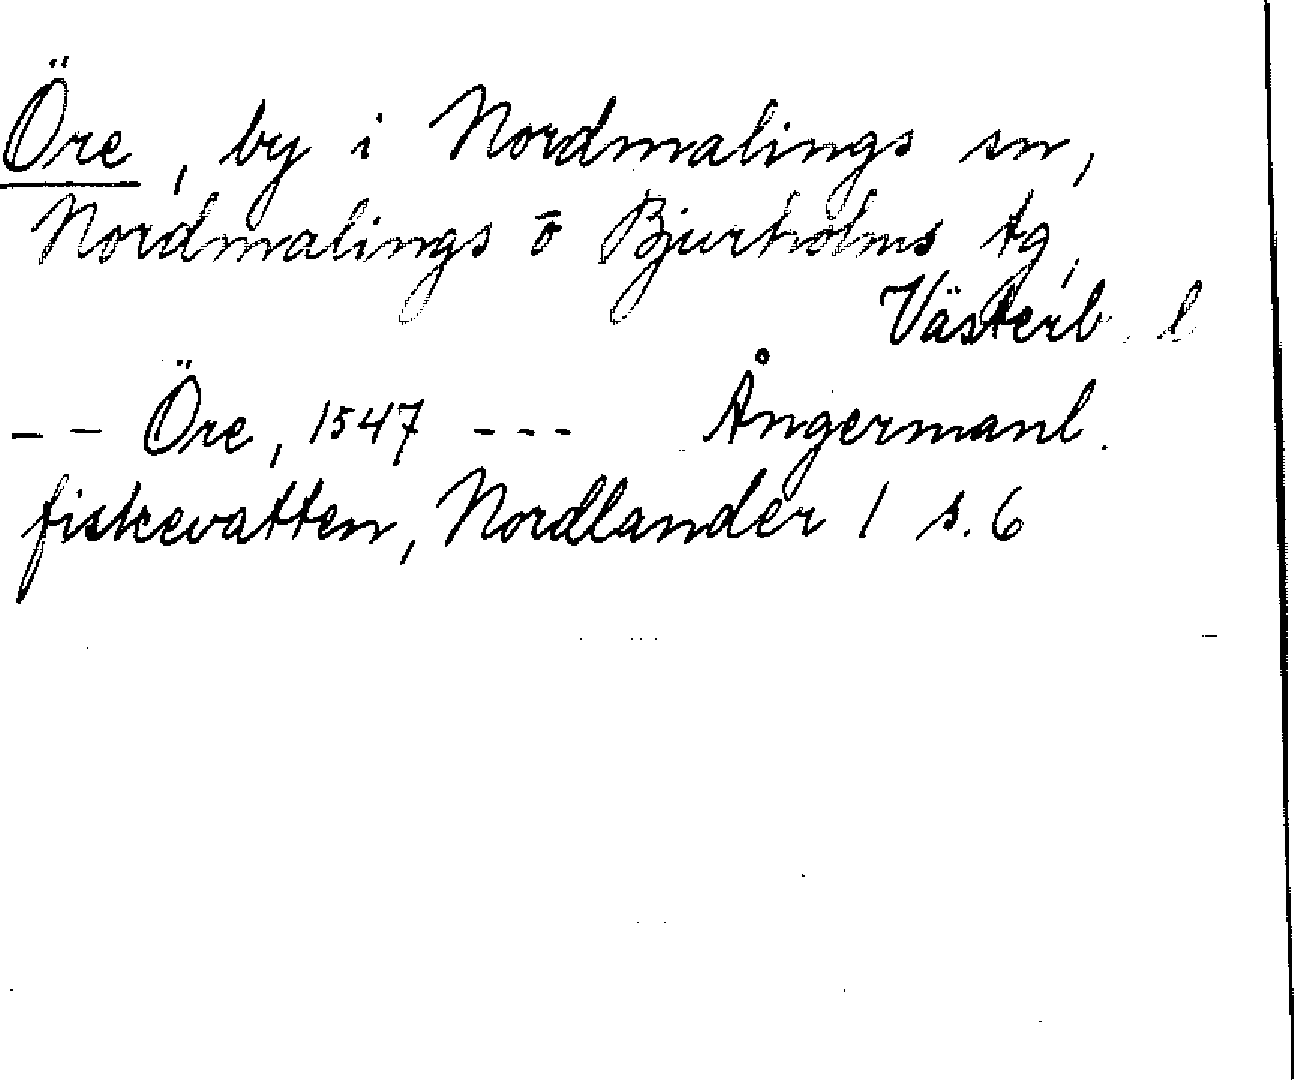 Öre, by i Nordmalings sn,
Nordmalings ō Bjurholms tg,
Västerb. l
-- Öre, 1547 --- Ångermanl.
fiskevatten, Nordlander 1 s. 6